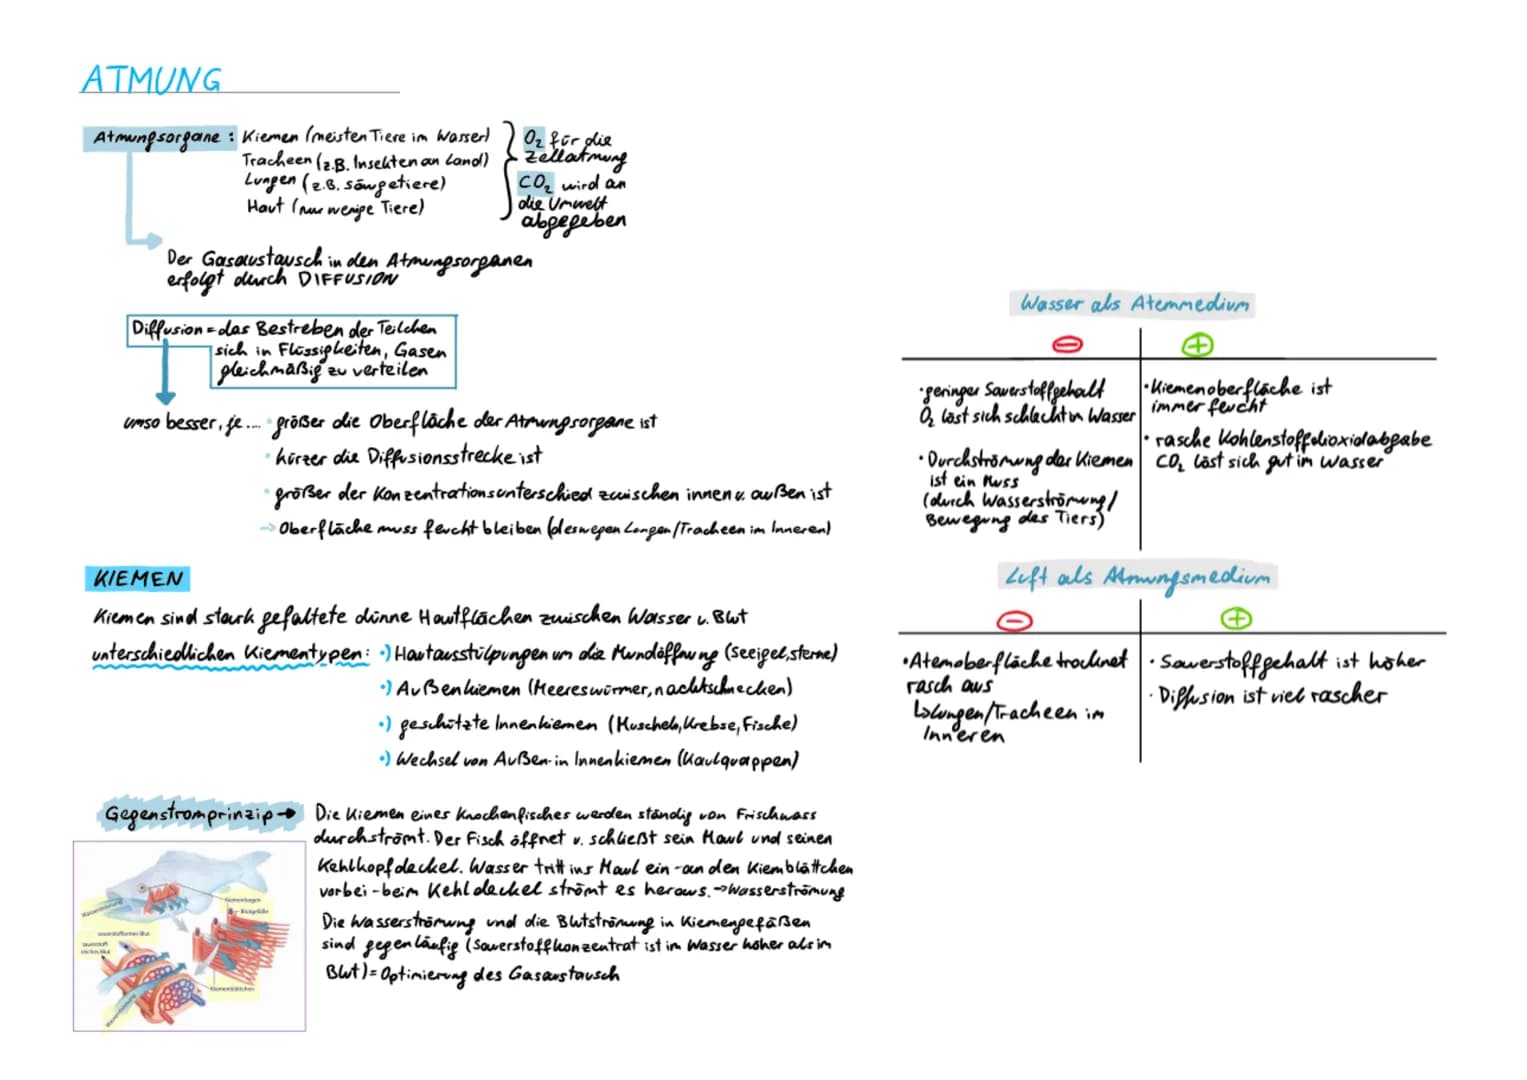 ATMUNG
Atmungsorgane : Kiemen (meisten Tiere im Wasser)
Tracheen (z.B. Insekten an Land)
Lungen (z.B. säugetiere)
Haut (nur wenige Tiere)
O₂ für die
Zellatmung
CO₂ wird an
die Umwelt
abgegeben
Der Gasaustausch in den Atmungsorganen
erfolgt durch DIFFUSION
Diffusion = das Bestreben der Teilchen
sich in Flüssigkeiten, Gasen
gleichmäßig zu verteilen
umso besser, je .... • größer die Oberfläche der Atmungsorgane ist
• kürzer die Diffusionsstrecke ist
• größer der Konzentrationsunterschied zwischen innen u. außen ist
→ Oberfläche muss feucht bleiben (deswegen Lungen/Tracheen im Inneren)
KIEMEN
Kiemen sind stark gefaltete dünne Hautflächen zwischen Wasser u. Blut
unterschiedlichen Kiementypen: •) Hautausstülpungen um die Mundöffnung (Seeigel, sterne)
•) Außenkiemen (Meereswürmer, nacktschnecken)
•) geschützte Innenkiemen (Muscheln, Krebse, Fische)
•) Wechsel von Außen- in Innenkiemen (Kaulquappen)
Gegenstromprinzip → Die Kiemen eines Knochenfisches werden ständig von Frischwass
durchströmt. Der Fisch öffnet u. schließt sein Maul und seinen
Kehlkopfdeckel. Wasser tritt ins Maul ein - an den Kiemblättchen
vorbei - beim Kehldeckel strömt es heraus. → Wasserströmung
Die Wasserströmung und die Blutströmung in Kiemengefäßen
sind gegenläufig (Sauerstoffkonzentrat ist im Wasser höher als im
Blut) = Optimierung des Gasaustausch
Wasserströmung
Kiemenbogen
Blutgefäße
sauerstoffarmes Blut
sauerstoff-
reiches Blut
Kiemenblättchen
Wasserströmung
Wasser als Atemmedium
⊖ ⊕
• geringer Sauerstoffgehalt
O₂ löst sich schlecht in Wasser
• Durchströmung der Kiemen
ist ein Muss
(durch Wasserströmung/
Bewegung des Tiers)
• Kiemenoberfläche ist
immer feucht
• rasche Kohlenstoffdioxidabgabe
CO₂ löst sich gut im Wasser
Luft als Atmungsmedium
⊖ ⊕
• Atemoberfläche trocknet
rasch aus
Lungen/Tracheen im
Inneren
• Sauerstoffgehalt ist höher
• Diffusion ist viel rascher